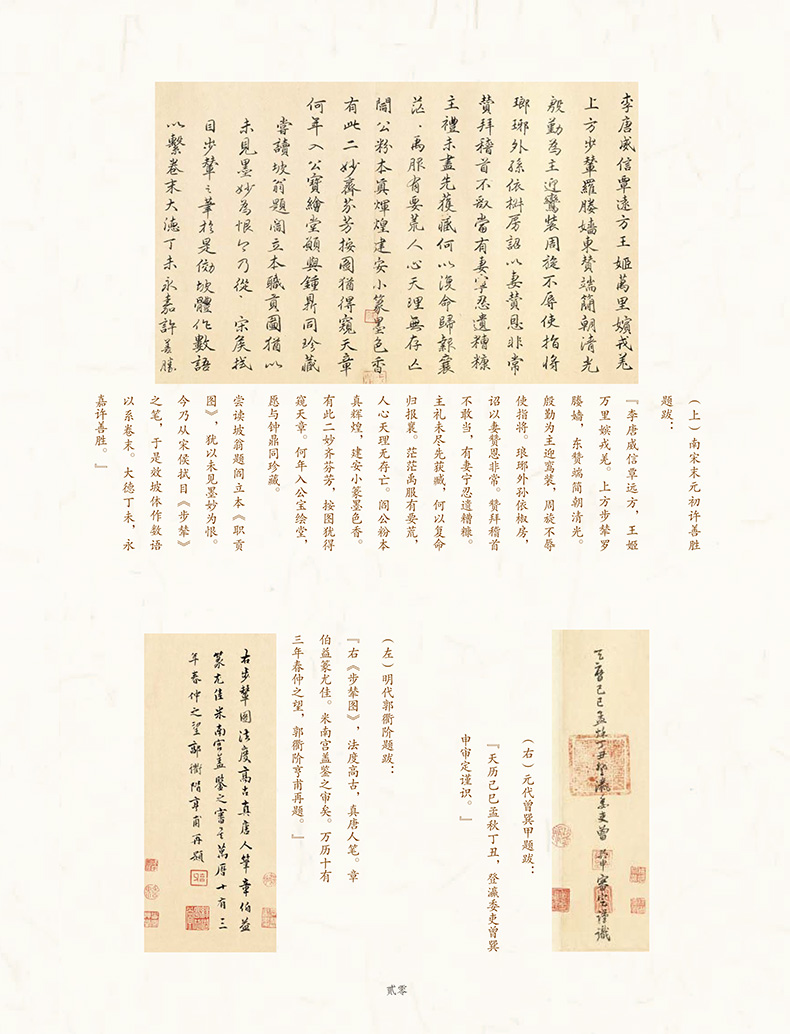 李唐威信覃遠方王姬萬里嬪戎羌
上方步輦羅媵嬙東贊端簡朝清光
殷勤為主迎鸞裝周旋不辱使指將
瑯琊外孫依椒房詔以妻贊恩非常
贊拜稽首不敢當有妻寧忍遺糟糠
主禮未盡先獲臧何以復命歸報襄
茫、禹服有要荒人心天理無存亡
閻公粉本真輝煌建安小篆墨色香
有此二妙齊芬芳按圖猶得窺天章
何年入公寶繪堂願與鍾鼎同珍藏
嘗讀坡翁題閻立本職貢圖猶以
未見墨妙為恨今乃從宋矦拭
目步輦之筆於是傚坡體作數語
以繫卷末大德丁未永嘉許善勝
（上）南宋末元初许善胜
题跋：
『李唐威信覃远方，王姬
万里嫔戎羌。上方步辇罗
媵嫱，东赞端简朝清光。
殷勤为主迎鸾装，周旋不辱
使指将。琅琊外孙依椒房，
诏以妻赞恩非常。赞拜稽首
不敢当，有妻宁忍遗糟糠。
主礼未尽先获臧，何以复命
归报襄。茫茫禹服有要荒，
人心天理无存亡。阎公粉本
真辉煌，建安小篆墨色香。
有此二妙齐芬芳，按图犹得
窥天章。何年入公宝绘堂，
愿与钟鼎同珍藏。
尝读坡翁题阎立本《职贡
图》，犹以未见墨妙为恨。
今乃从宋侯拭目《步辇》
之笔，于是效坡体作数语
以系卷末。大德丁未，永
嘉许善胜。』
天曆己巳孟秋丁丑登瀛委吏曾巽申審定謹識
（右）元代曾巽甲题跋：
『天历己巳孟秋丁丑，登瀛委吏曾巽
申审定谨识。』
（左）明代郭衢阶题跋：
『右《步辇图》，法度高古，真唐人笔。章
伯益篆尤佳。米南宫盖鉴之审矣。万历十有
三年春仲之望，郭衢阶亨甫再题。』
右步輦圖法度高古真唐人筆章伯益
篆尤佳米南宫盖鑒之審矣萬曆十有三
年春仲之望郭衢階亨甫再題
贰零